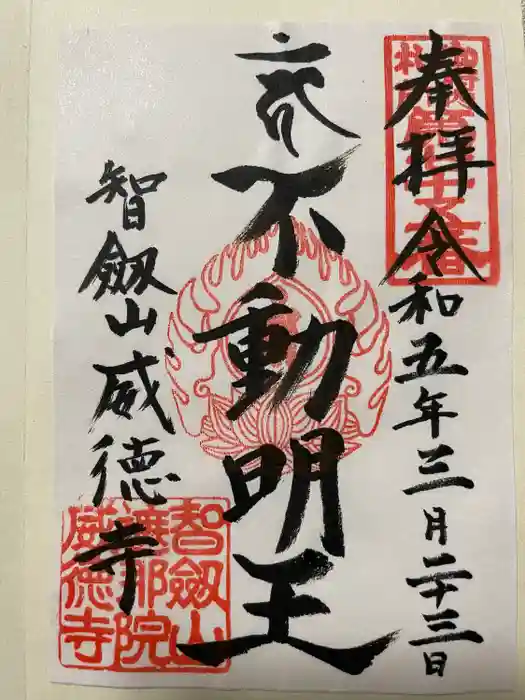 奉拝
令和五年三月二十三日
不動明王
智劔山威徳寺
智劔山
院
威徳寺